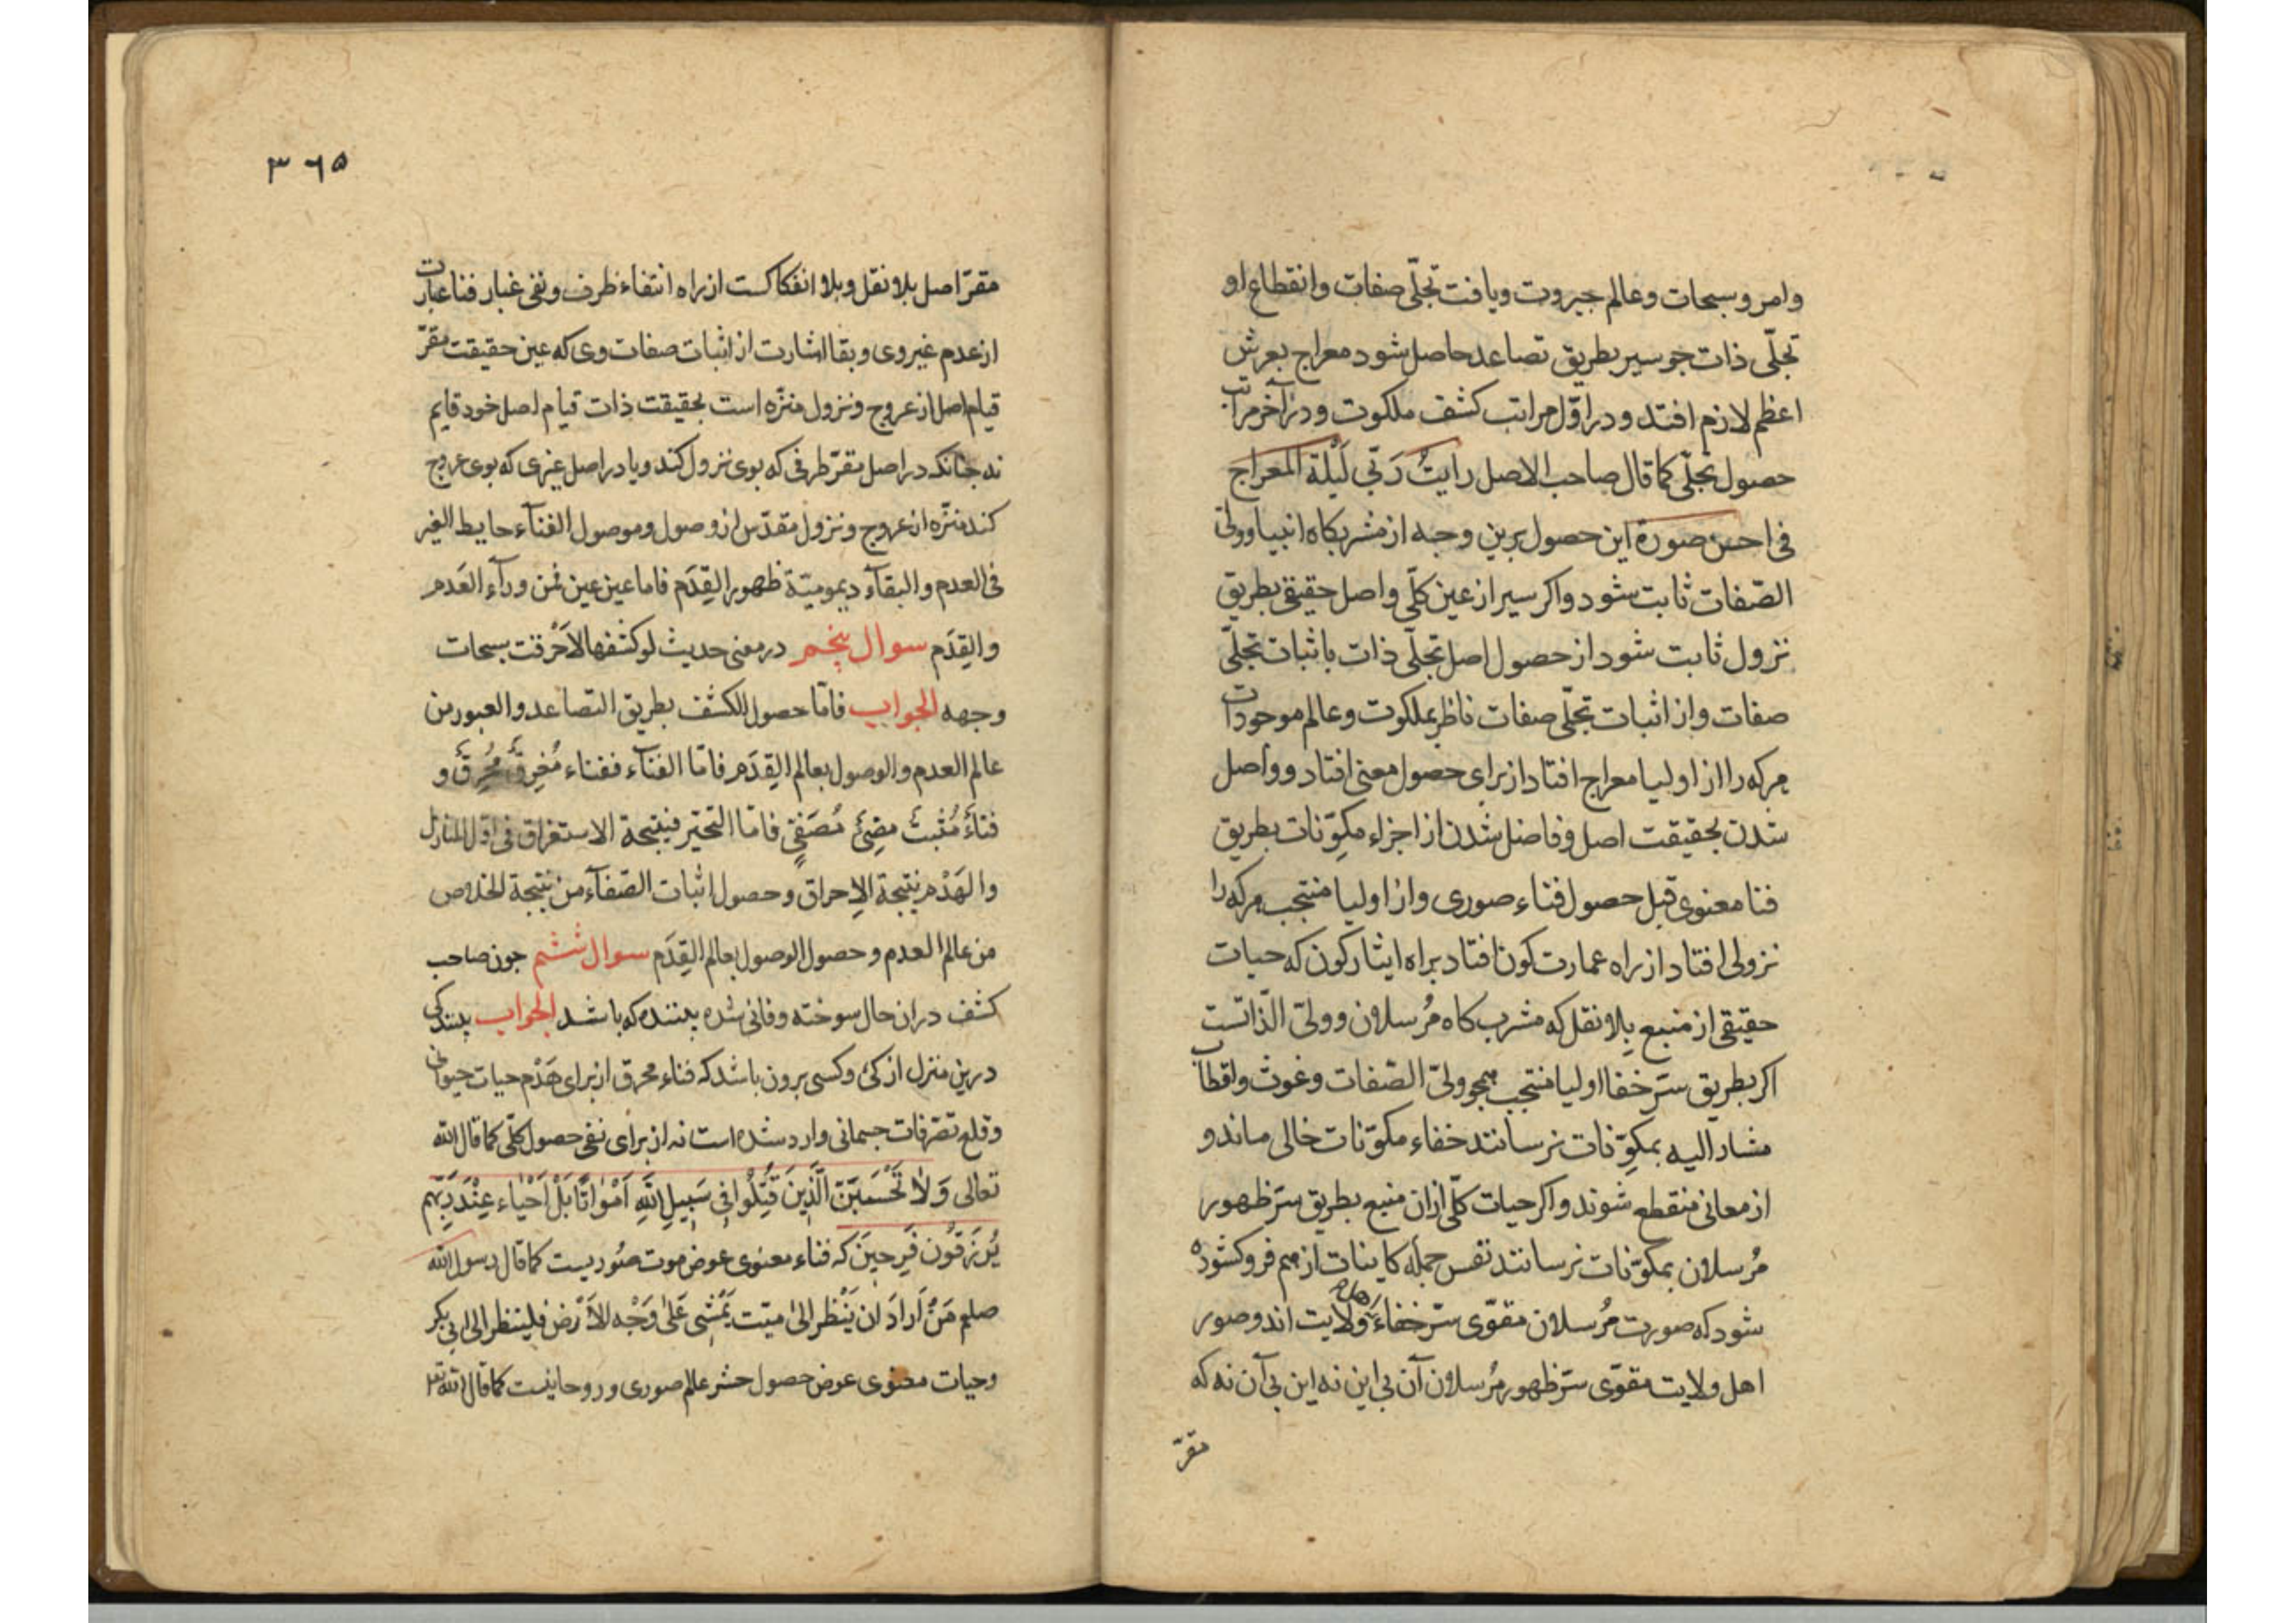 وامر و سبحات و عالم جبروت و یافت تجلّی صفات و انقطاع او
تجلّی ذات جو سیر بطریق تصاعد حاصل شود معراج بعرش
اعظم لازم افتد و در اوّل مراتب کشف ملکوت و در آخر مراتب
حصول تجلّی کما قال صاحب الاصل رایتُ رَبّی لَیْلَة المعراج
فی احسن صورة این حصول برین وجه از مشربکاه انبیا وولیّ
الصّفات ثابت شود واکر سیر از عین کلّی واصل حقیقی بطریق
نزول ثابت شود از حصول اصل تجلّی ذات باثبات تجلّی
صفات واز اثبات تجلّی صفات ناظر بملکوت و عالم موجودات
مرکه را از اولیا معراج افتاد از برای حصول معنی افتاد و واصل
شدن بحقیقت اصل و فاضل شدن از اجزاء مکوّنات بطریق
فنا معنوی قبل حصول فناء صوری واز اولیا منتجب مرکه را
نزولی افتاد از راه عمارت کون افتاد براه ایثار کون که حیات
حقیقی از منبع بِلا نقل که مشرب کاه مُرسلان وولیّ الذّاتست
اکر بطریق سرّ خفا اولیا منتجب مجو ولیّ الصّفات وغوث واقطاب
مشار الیه بمکوّنات نرسانند خفاء مکوّنات خالی ماند و
از معانی منقطع شوند واکر حیات کلّی ازان منبع بطریق سرّ ظهور
مُرسلان بمکوّنات نرسانند نفس جمله کاینات از مم فرو کشوده
شود که صورت مُرسلان مقوّی سرّ خفاء اهل ولایت اند وصور
اهل ولایت مقوّی سرّ ظهور مُرسلان آن بی این نه این بی آن نه که
مقرّ
۳۶۵
مقرّ اصل بلا نقل و بلا انفکاکست از راه انتفاء ظرف و نفی غبار فنا عبارت
از عدم غیر وی و بقا اشارت از اثبات صفات وی که عین حقیقت مقرّ
قیام اصل از عروج و نزول منزّه است بحقیقت ذات قیام اصل خود قایم
نه جنانکه در اصل مقرّ طرفی که بوی نزول کند و یا در اصل غیری که بوی عروج
کند منزّه از عروج و نزول مقدّس از وصول و موصول الفنآء حایط الغیر
فی العدم والبقآء دیمومیّة ظهور القِدَم فاما عین عین فمن ورآء العَدم
والقِدَم سوال پنجم در معنی حدیث لو کشفها لاَحْرقت سبحات
وجهه الجواب فامّا حصول الکشف بطریق التصاعد والعبور من
عالم العدم والوصول بعالم القِدَم فامّا الفنآء ففناء مُغرِقٌ مُحرِقٌ و
فناءٌ مُثبتٌ مضِئٌ مُصَفّیٍ فامّا التحیّر فنتیجة الاستغراق فی اوّل المنازل
والهَدْم نتیجة الاِحراق و حصول اثبات الصّفآء من نتیجة الخلاص
من عالم العدم و حصول الوصول بعالم القِدَم سوال ششم جون صاحب
کشف دران حال سوخته و فانی شده بیننده که باشد الجواب بینندکی
درین منزل از کئ و کسی برون باشد که فناء محرق از برای هَدْم حیات حیوانی
و قلع تصرّفات جسمانی وارد شده است نه از برای نفی حصول کلّی کما قال الله
تعالی وَلاٰ تَحْسَبَنَّ الَّذینَ قُتِلُوا فی سَبیلِ اللهِ اَمْوٰاتًا بَلْ اَحْیٰاء عِنْدَ رَبِّهِم
یُرْزَقُونَ فَرِحینَ که فناء معنوی عوض موت صُوریست کما قال رسول الله
صلم مَنْ اَرادَ ان یَنْظر الیٰ میّت یَمْشی عَلیٰ وَجْه الاَرْض فلینظر الی ابی بکر
وحیات معنوی عوض حصول حشر عالم صوری و روحانیست کما قال الله تعٰ